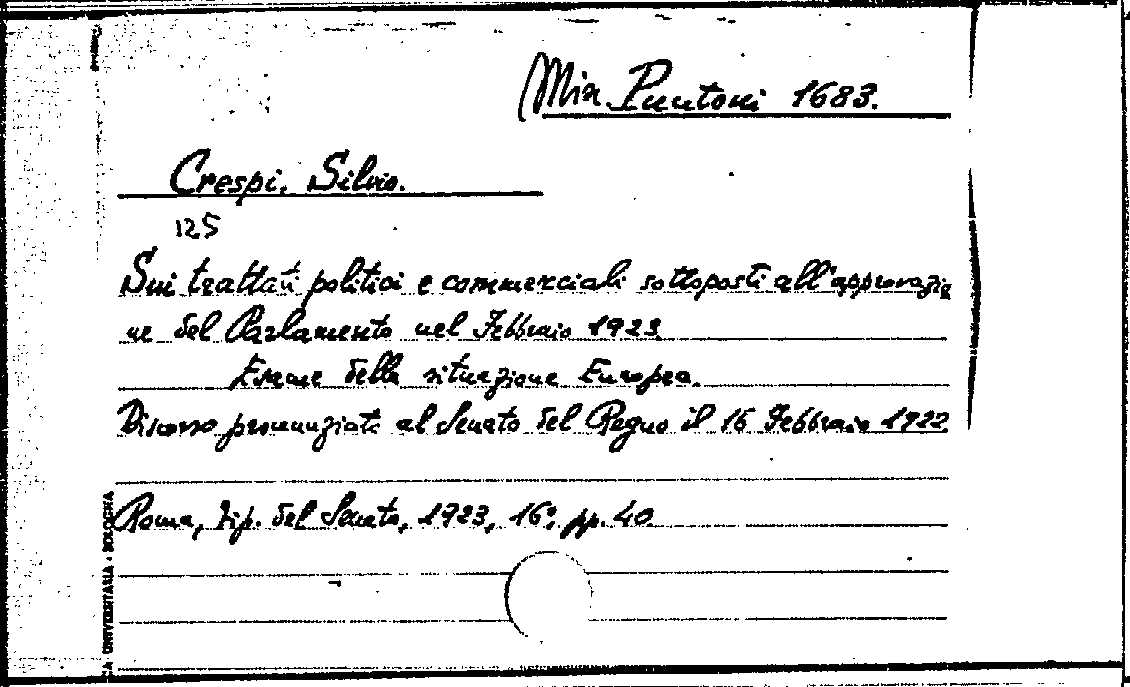 Mix. Puntoni 1683.
Crespi, Silvio.
125
Sui trattati politici e commerciali sottoposti all'approvazio
ne del Parlamento nel Febbraio 1923
Esame della situazione Europea.
Discorso pronunziato al Senato del Regno il 16 Febbraio 1922
Roma, Tip. del Senato, 1923, 16°, pp. 40
CA UNIVERSITARIA - BOLOGNA